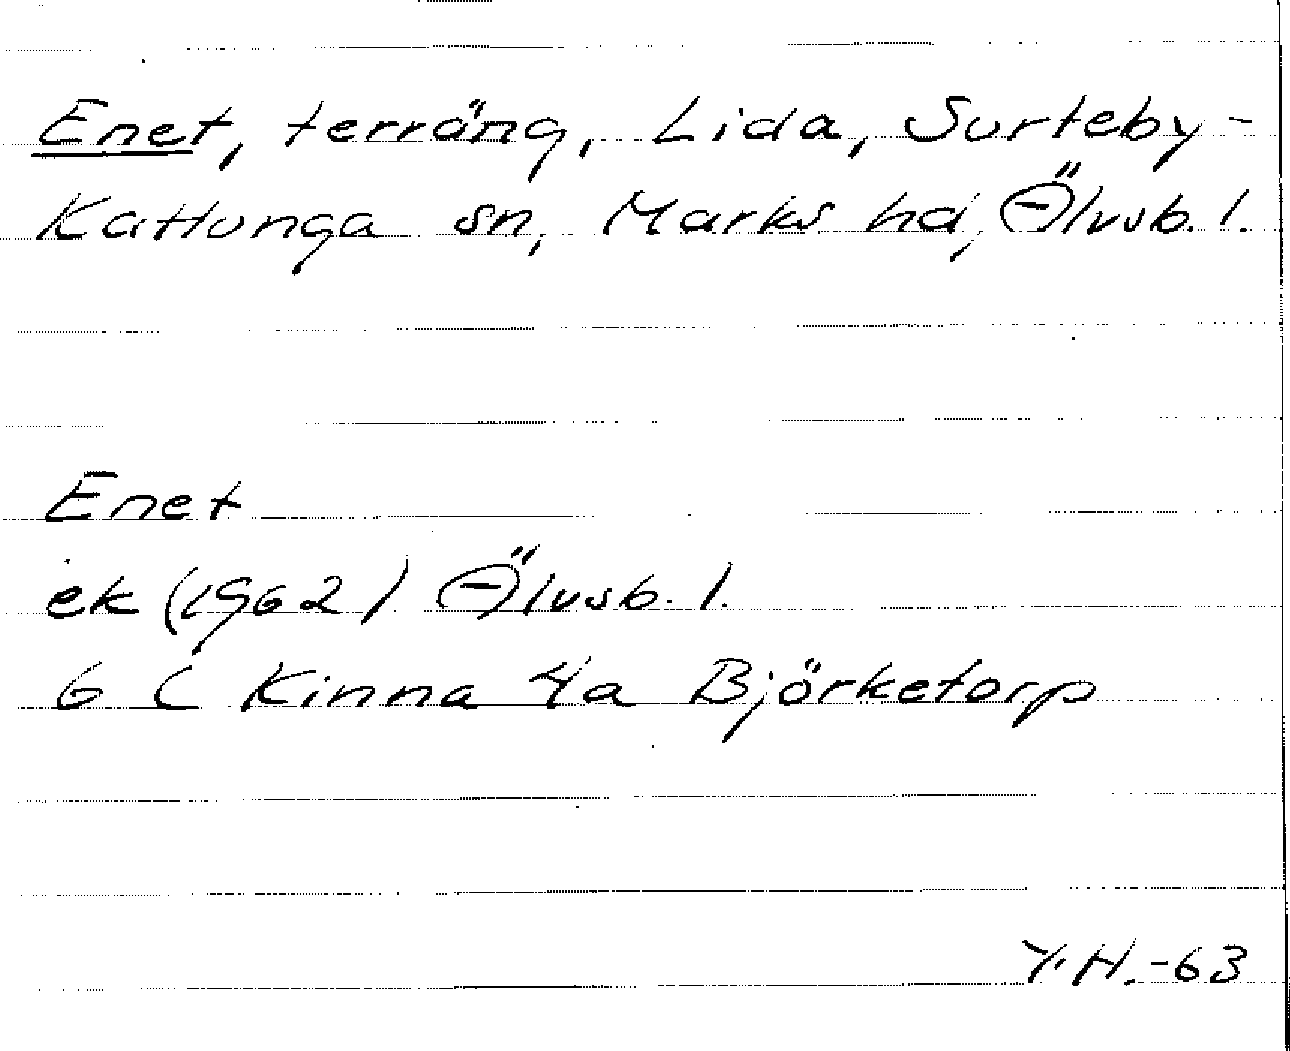 Enet, terräng, Lida, Surteby-
Kattunga sn, Marks hd, Älvsb. l.
Enet
ek (1962) Älvsb. l.
6 C Kinna 4a Björketorp
Y.H.-63